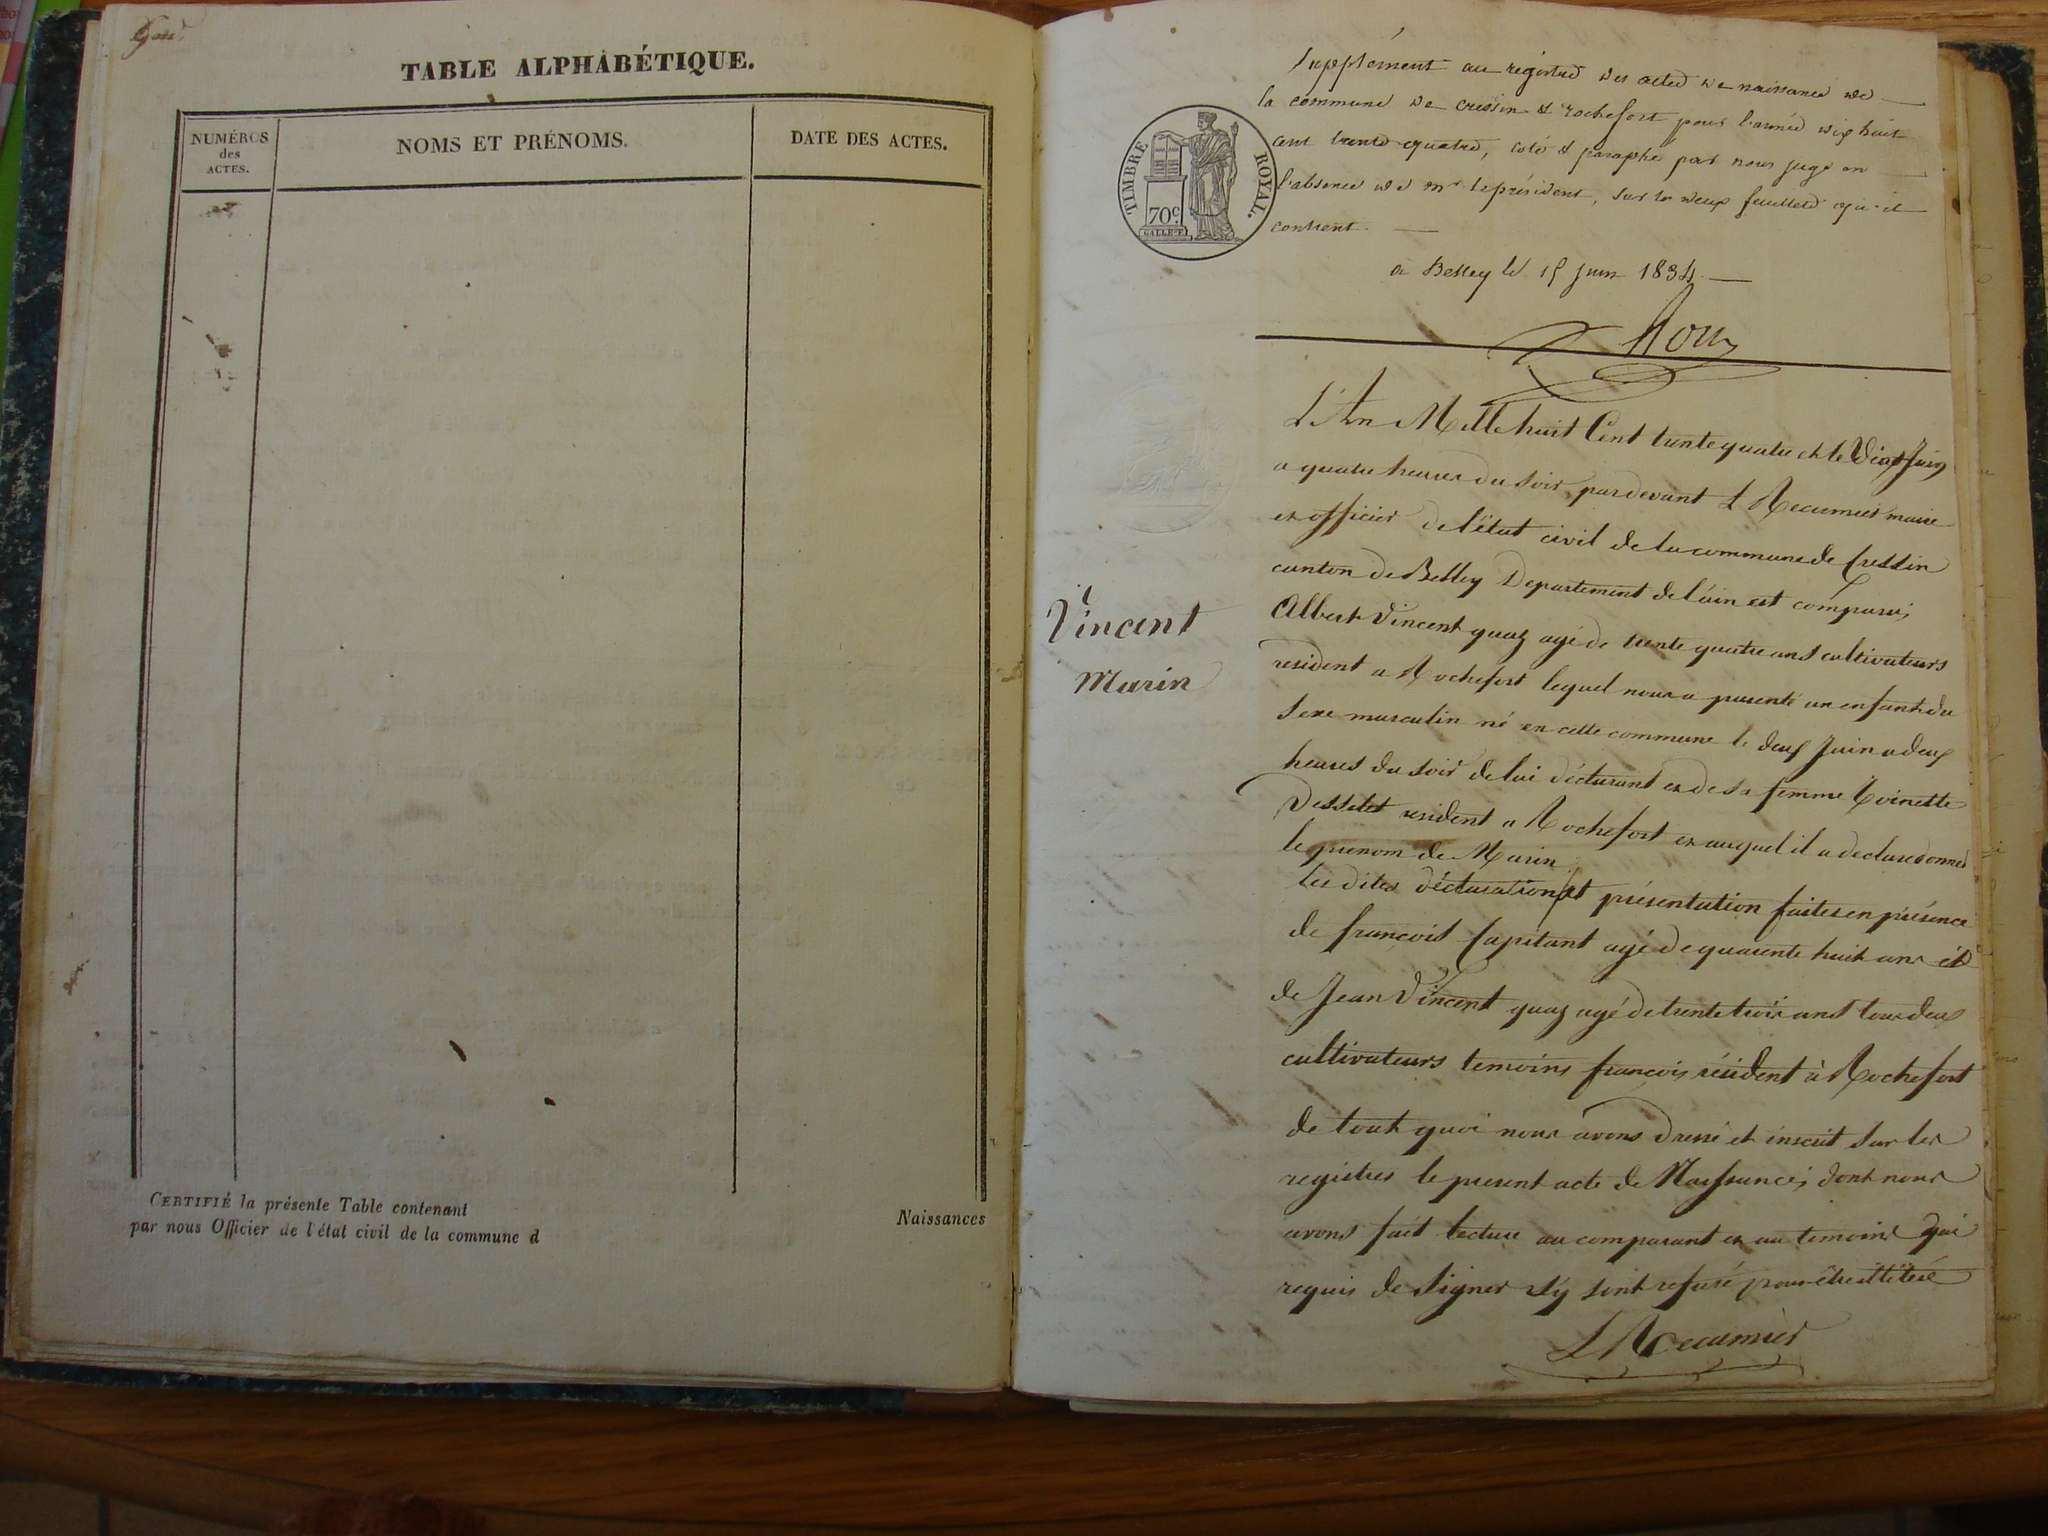 TABLE ALPHABÉTIQUE.
NUMÉROS
des
ACTES.
NOMS ET PRÉNOMS.
DATE DES ACTES.
CERTIFIÉ la présente Table contenant
Naissances
par nous Officier de l'état civil de la commune d
Supplément au registre des actes de naissance de
la commune de cressin & rochefort pour l'année dix huit
cent trente quatre, coté & paraphé par nous juge en
l'absence de Mr le président, sur les deux feuillets qu'il
contient.
à Belley le 15 Juin 1834
TIMBRE ROYAL.
70c
L'An Mille huit Cent trente quatre et le Juin
a quatre heures du soir, pardevant L Recumier maire
et officier de l'état civil de la commune de Cressin
canton de Belley Departement de l'ain est comparu
Albert Vincent quaz agé de trente quatre ans cultivateurs
resident a Rochefort lequel nous a presenté un enfant du
Sexe masculin né en cette commune le deux Juin a deux
heures du soir de lui déclarant et de sa femme Toinette
resident a Rochefort et auquel il a declaré donner
le prenom de Marin
les dites déclaration et présentation faites en présence
de françois Capitant agé de quarente huit ans et
de Jean Vincent quaz agé de trente trois ans tous deux
cultivateurs temoins françois résident à Rochefort
de tout quoi nous avons dressé et inscrit sur les
registres le present acte de Naissance, dont nous
avons fait lecture au comparant et au temoins qui
requis de Signer s'y sont refusé pour être illiteré
L Recumier
Vincent
Marin